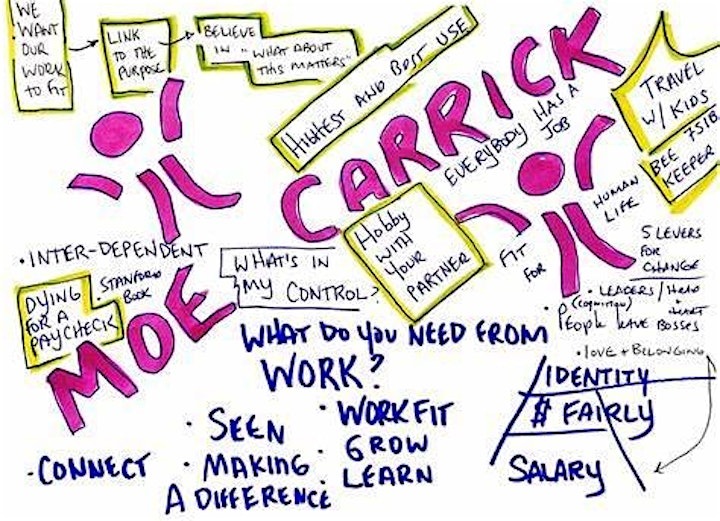 WE
WANT
OUR
WORK
TO FIT
LINK
TO THE
PURPOSE
BELIEVE
IN "WHAT ABOUT
THIS MATTERS"
HIGHEST AND BEST USE
CARRICK
EVERYBODY HAS A
JOB
TRAVEL
W/ KIDS
BEE 75lB
KEEPER
HUMAN
LIFE
FIT
FOR
Hobby
WITH
YOUR
PARTNER
• INTER-DEPENDENT
• STANFORD
BOOK
DYING
FOR A
PAYCHECK
WHAT'S IN
MY CONTROL?
MOE
5 LEVERS
FOR
CHANGE
• LEADERS/HEAD
(COGNITION) + HEART
• PEOPLE LEAVE BOSSES
• LOVE + BELONGING
WHAT DO YOU NEED FROM
WORK?
• CONNECT
• SEEN
• MAKING
A DIFFERENCE
• WORK FIT
• GROW
• LEARN
IDENTITY
$ FAIRLY
SALARY